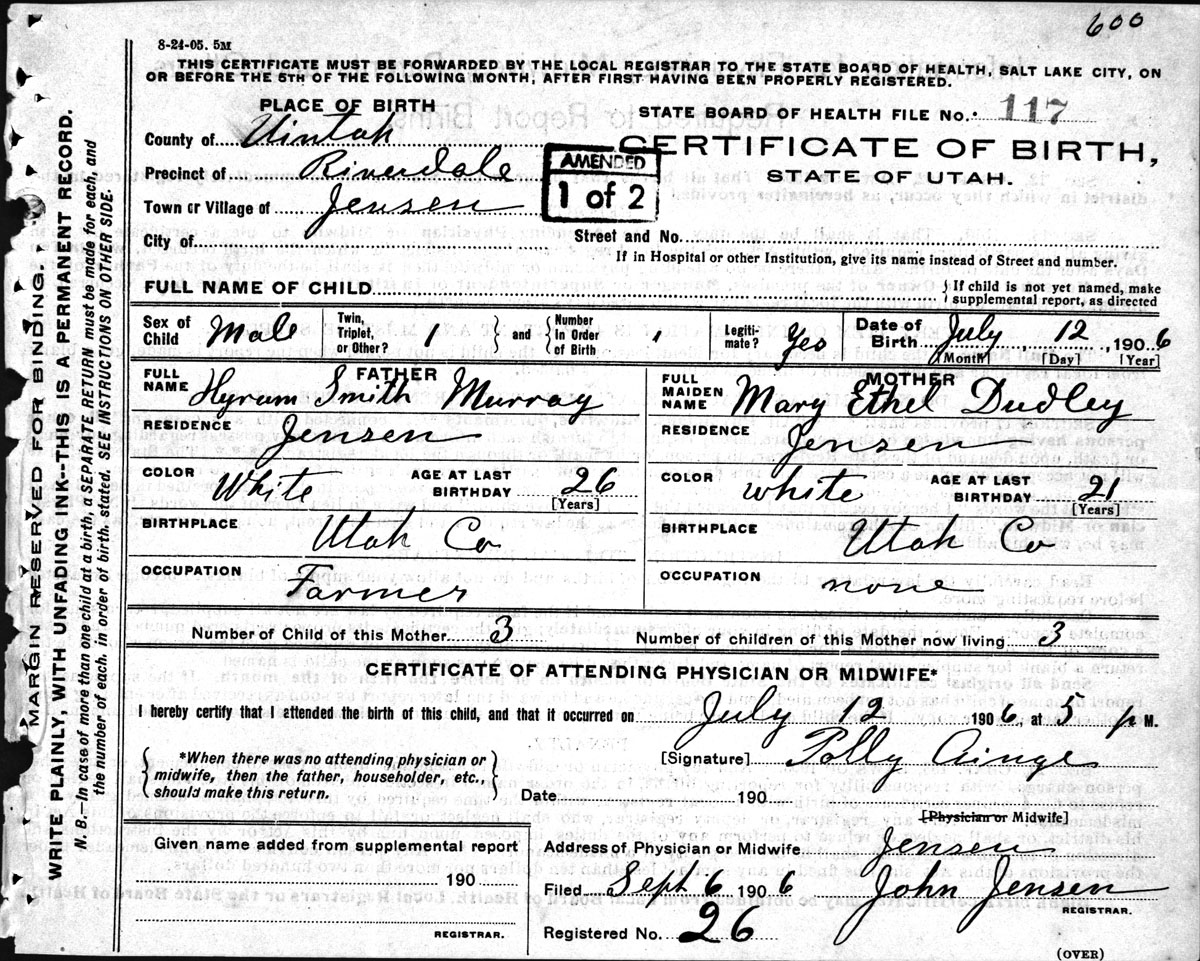 600
8-24-05. 5M
THIS CERTIFICATE MUST BE FORWARDED BY THE LOCAL REGISTRAR TO THE STATE BOARD OF HEALTH, SALT LAKE CITY, ON
OR BEFORE THE 5TH OF THE FOLLOWING MONTH, AFTER FIRST HAVING BEEN PROPERLY REGISTERED.
PLACE OF BIRTH
STATE BOARD OF HEALTH FILE No. 117
County of Uintah
CERTIFICATE OF BIRTH,
STATE OF UTAH.
Precinct of Riverdale
AMENDED
1 of 2
Town or Village of Jensen
City of
Street and No.
If in Hospital or other Institution, give its name instead of Street and number.
FULL NAME OF CHILD
If child is not yet named, make
supplemental report, as directed
Sex of Child Male Twin, Triplet, or Other? 1 and Number In Order of Birth Legiti-mate? Yes Date of Birth July 12, 1906
[Month] [Day] [Year]
FATHER MOTHER
FULL NAME Hyrum Smith Murray FULL MAIDEN NAME Mary Ethel Dudley
RESIDENCE Jensen RESIDENCE Jensen
COLOR White AGE AT LAST BIRTHDAY 26 [Years] COLOR White AGE AT LAST BIRTHDAY 21 [Years]
BIRTHPLACE Utah Co BIRTHPLACE Utah Co
OCCUPATION Farmer OCCUPATION none
Number of Child of this Mother 3 Number of children of this Mother now living 3
CERTIFICATE OF ATTENDING PHYSICIAN OR MIDWIFE*
I hereby certify that I attended the birth of this child, and that it occurred on July 12 1906, at 5 p M.
*When there was no attending physician or
midwife, then the father, householder, etc.,
should make this return.
[Signature] Polly Ainge
Dated 190
[Physician or Midwife]
Given name added from supplemental report
190
REGISTRAR.
Address of Physician or Midwife Jensen
Filed Sept 6 1906 John Jensen
REGISTRAR.
Registered No. 26
(OVER)
MARGIN RESERVED FOR BINDING.
WRITE PLAINLY, WITH UNFADING INK--THIS IS A PERMANENT RECORD.
N. B.—In case of more than one child at a birth, a SEPARATE RETURN must be made for each, and
the number of each, in order of birth, stated. SEE INSTRUCTIONS ON OTHER SIDE.